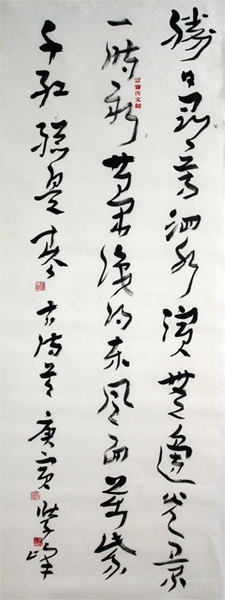 勝日尋芳泗水濱無邊光景
一時新等閑識得東風面萬紫
千紅總是春 古詩一首 庚寅